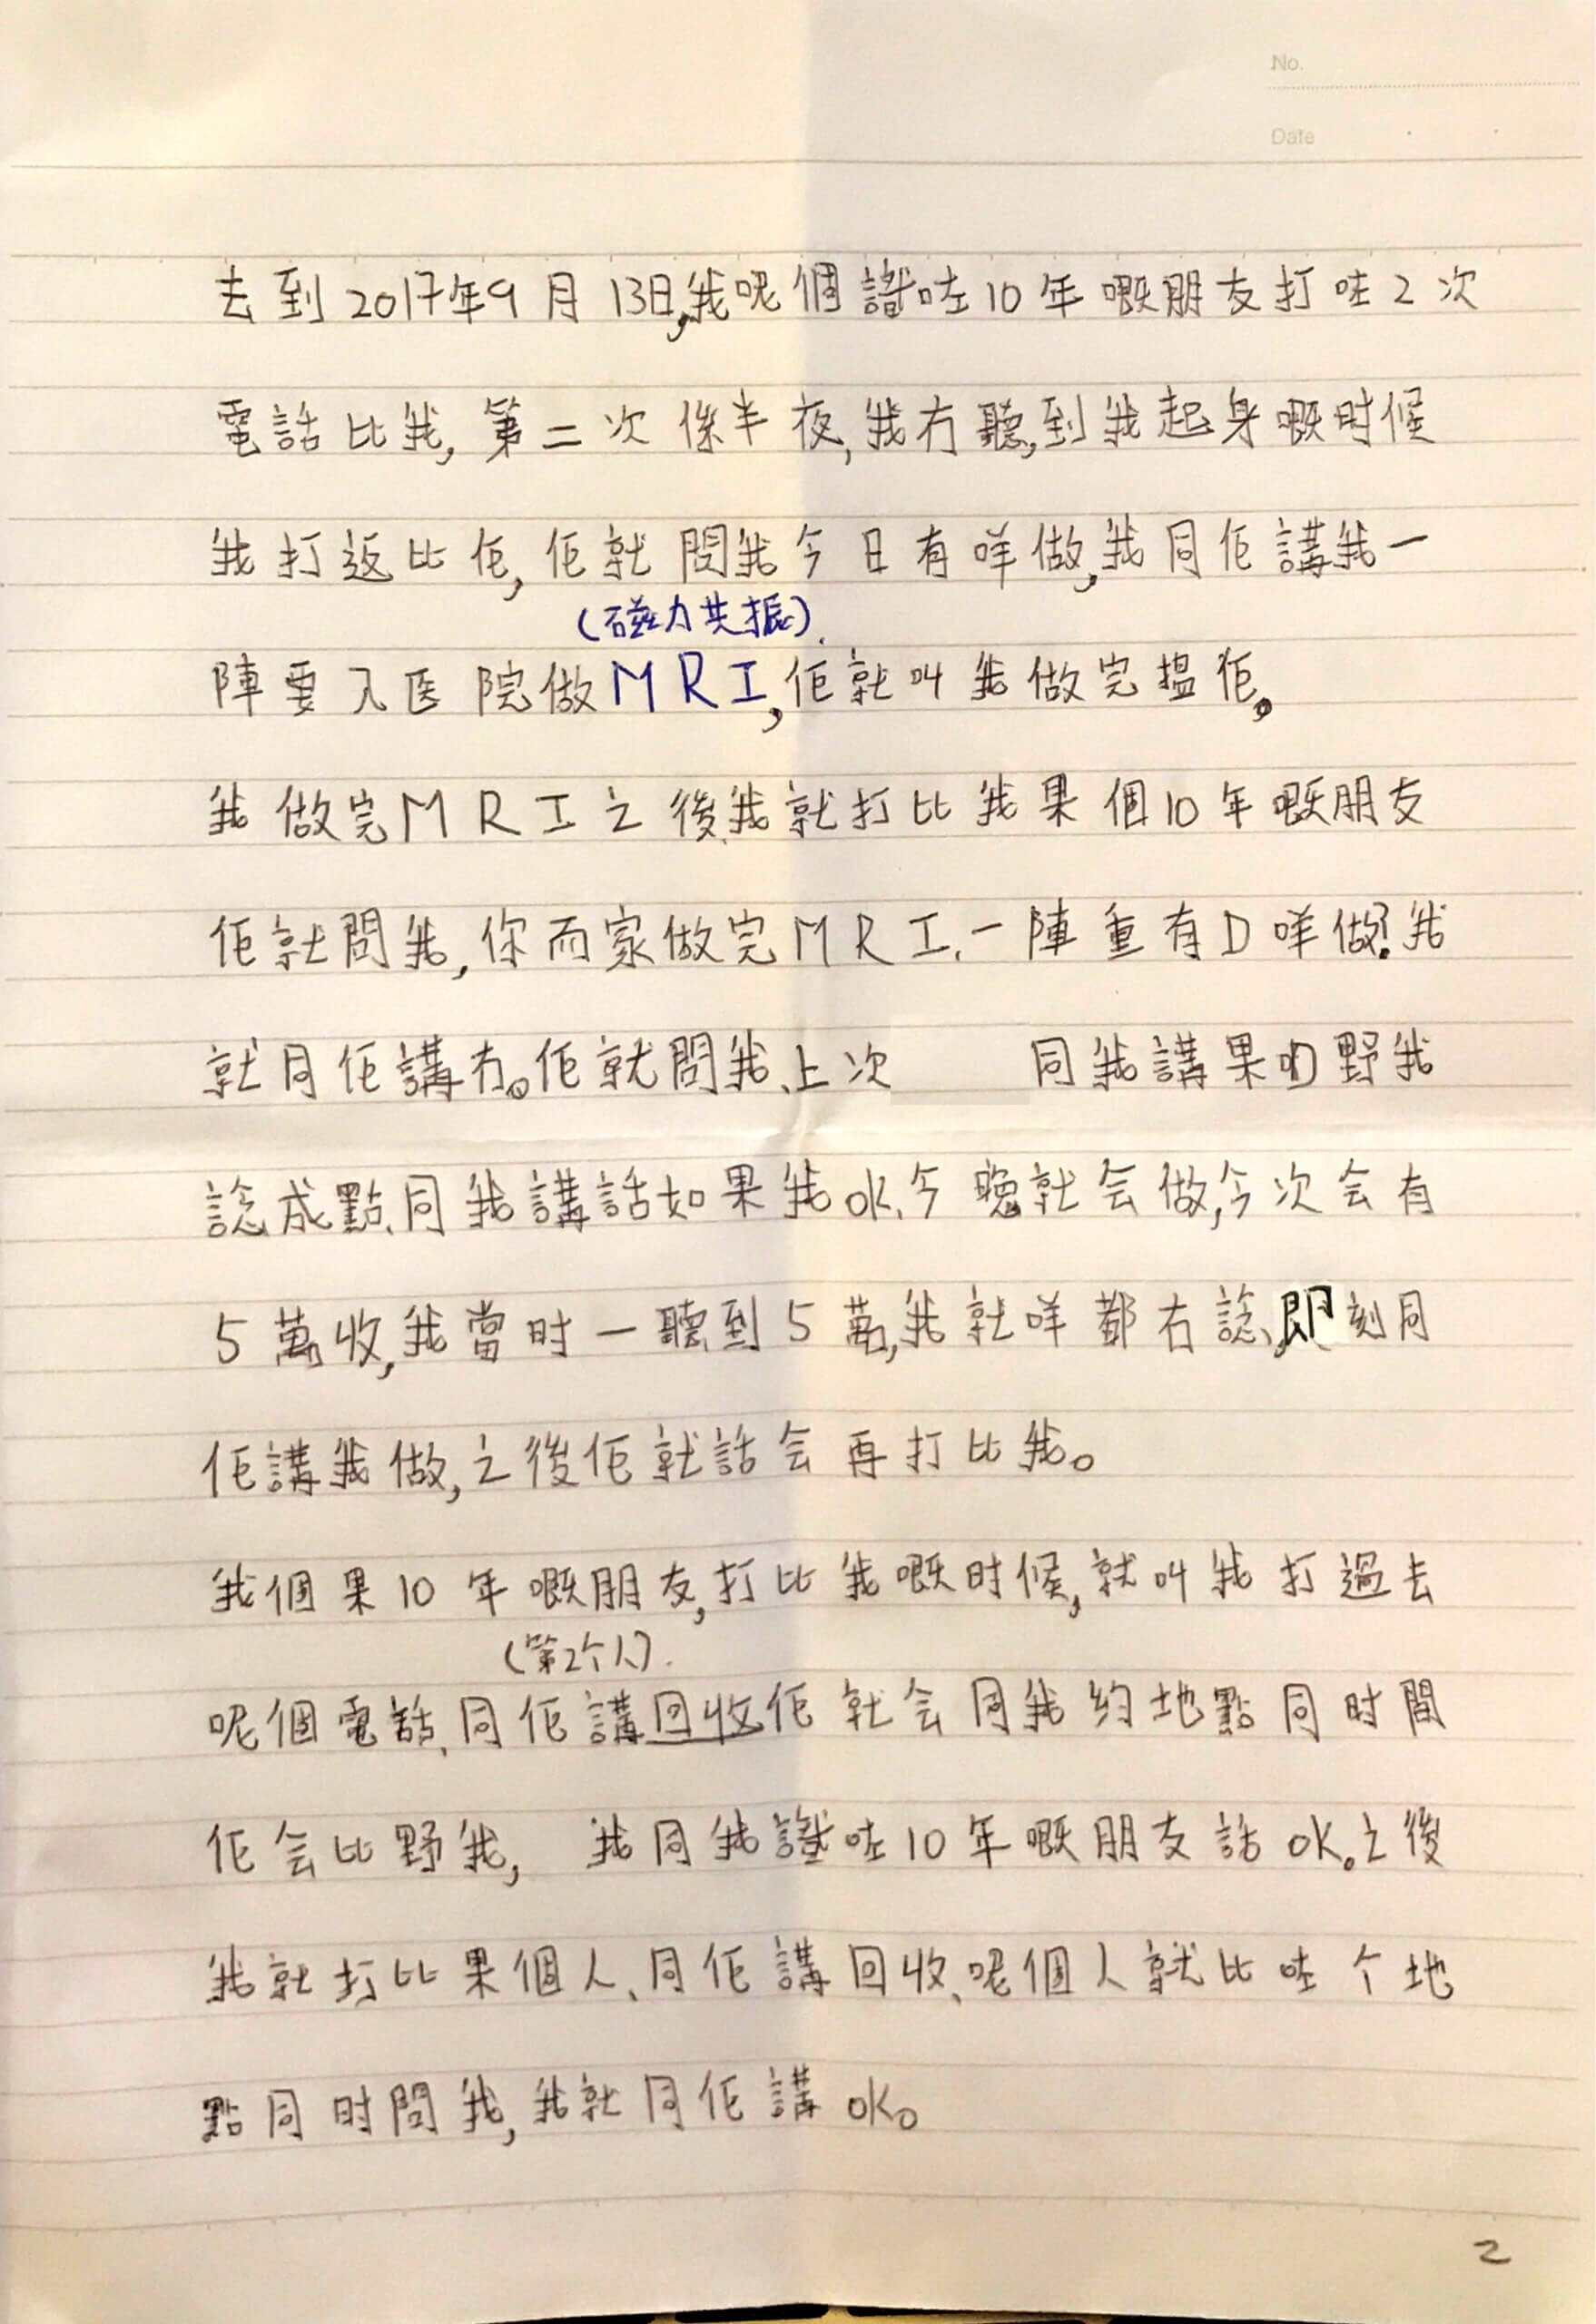 No.
Date
去到2017年9月13日,我呢個識咗10年嘅朋友打咗2次
電話比我,第二次係半夜,我冇聽,到我起身嘅时候
我打返比佢,佢就問我今日有咩做,我同佢講我一
(磁力共振).
陣要入医院做MRI,佢就叫我做完搵佢。
我做完MRI之後,我就打比我果個10年嘅朋友
佢就問我,你而家做完MRI、一陣重有D咩做?我
就同佢講冇。佢就問我、上次 同我講果啲野我
諗成點、同我講話如果我OK、今晚就会做,今次会有
5萬收,我當时一聽到5萬,我就咩都冇諗,即刻同
佢講我做,之後佢就話会再打比我。
我個果10年嘅朋友,打比我嘅时候,就叫我打過去
(第2个人).
呢個電話、同佢講回收佢就会同我約地點同时間
佢会比野我, 我同我識咗10年嘅朋友話OK。之後
我就打比果個人、同佢講回收、呢個人就比咗个地
點同时間我,我就同佢講OK。
2